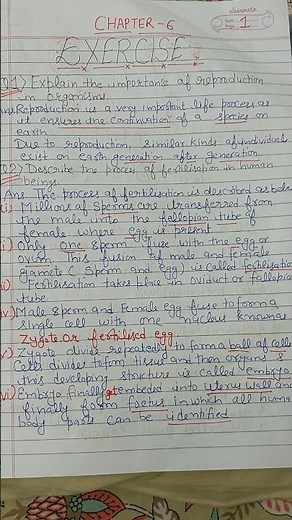 classmate
Date
Page 1
CHAPTER-6
EXERCISE
Q1) Explain the importance of reproduction
in organisms
Ans Reproduction is a very important life process as
it ensures the continuation of a species on
earth
Due to reproduction, similar kinds of individuals
exist on earth generation after generation
Q2) Describe the process of fertilisation in human
beings
Ans The process of fertilisation is described as below
(i) Millions of sperms are transferred from
the male into the fallopian tube of
female where egg is present
i) Only one sperm fuse with the egg or
ovum. This fusion of male and female
gamete (sperm and egg) is called fertilisation
Fertilisation takes place in oviduct or fallopian
tube
iv) Male sperm and Female egg fuse to form a
single cell with one nucleus known as
Zygote or fertilised egg
v) Zygote divide repeatedly to form a ball of cells
Cells divides to form tissue and then organs &
this developing structure is called embryo
vi) Embryo finally get embeded into uterus wall and
finally form foetus in which all human
body parts can be identified